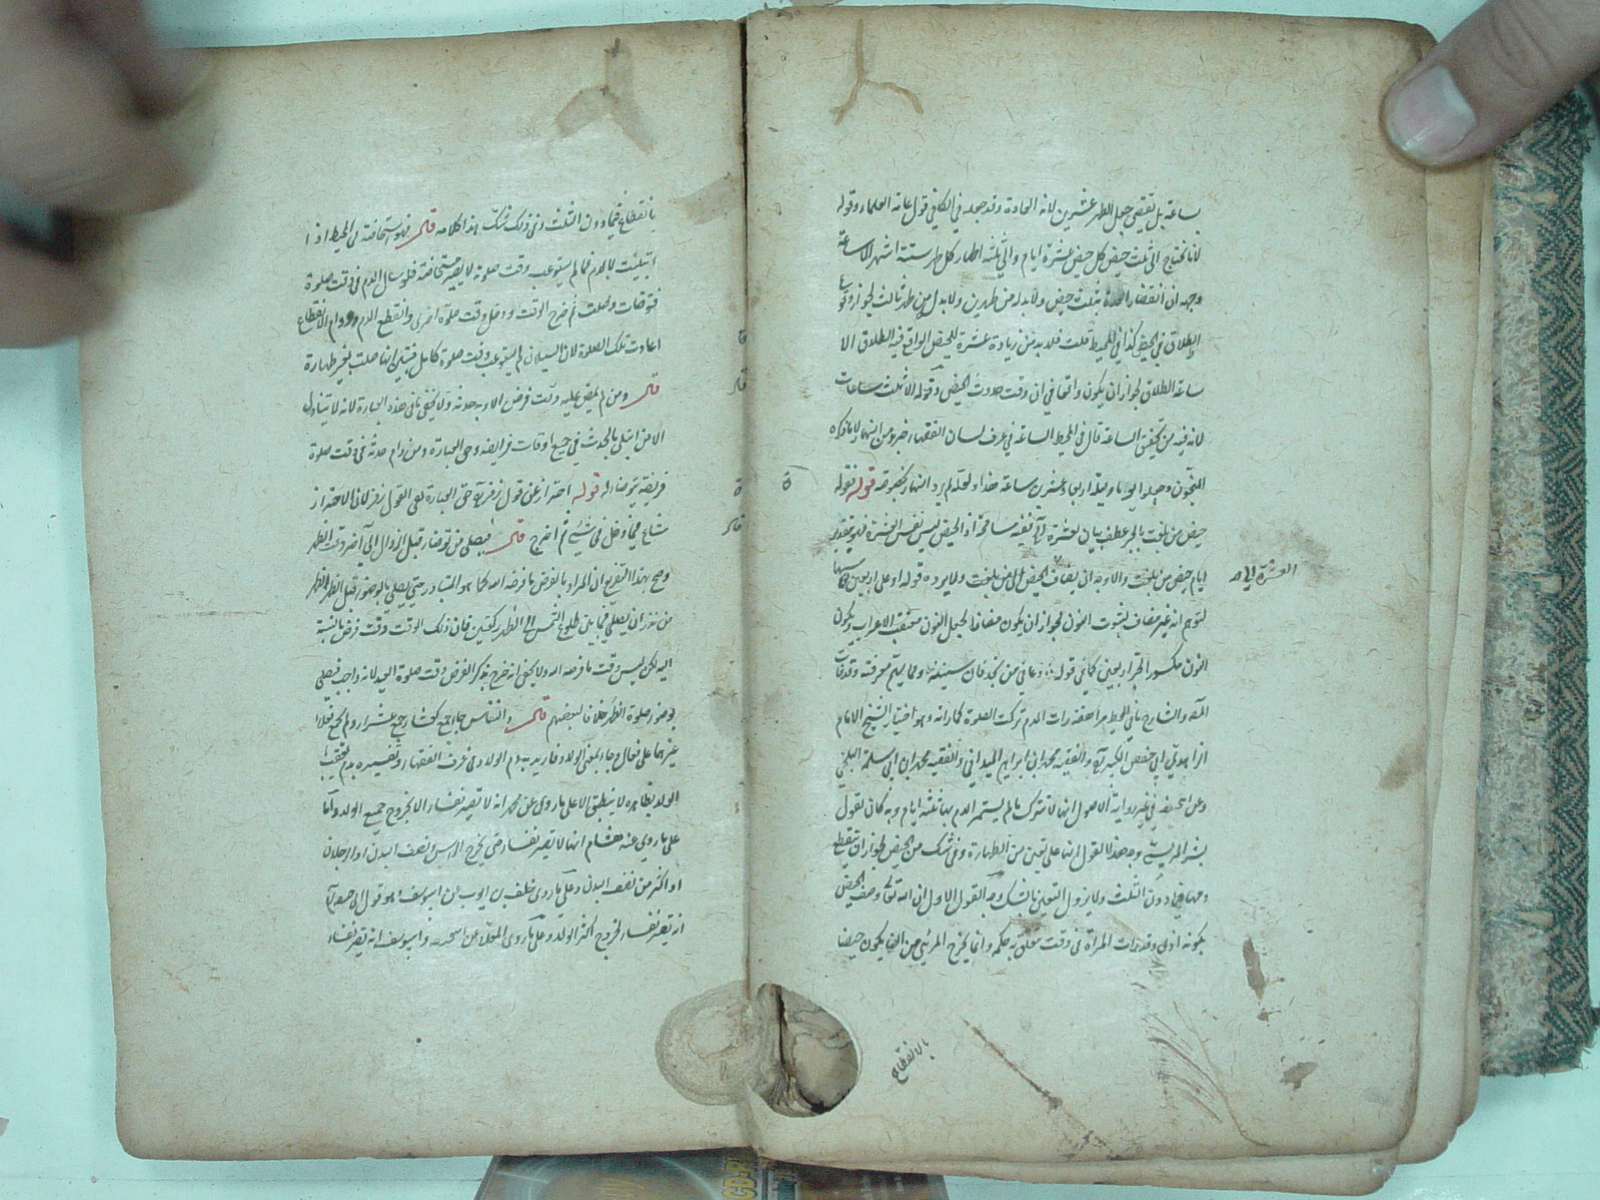 ساعة بل يقتضي جعل الطهر عشرين لانه العادة وقد جعله في الكافي قول عامة العلماء وقوله
لانا نحتاج الى ثلث حيض كل حيض عشرة ايام والى ثلثة اطهار كل طهر ستة اشهر الا ساعة
وجهه ان انقضاء العدة بثلث حيض ولا بد له من طهرين ولا بدل من طهر ثالث لجواز وقوع
الطلاق في الحيض كذا في المحيط قلت فلا بد من زيادة عشرة للحيض الواقع فيه الطلاق الا
ساعة الطلاق لجواز ان يكون واقعا في ان وقت حدوث الحيض وقوله الا ثلث ساعات
لانه فيه من تحقق الساعة قال في المحيط الساعة في عرف لسان الفقهاء جزء من النهار لا ما ذكره
المنجمون وجعلوا اليوم وليلة اربعا وعشرين ساعة هذا ولعله لم يرد النهار بخصوصه قوله فقوله
حيض من بلغت بالجر عطف بيان لعشرة
ايام حيض من بلغت والاوجه ان يضاف الحيض الى من بلغت ولا يرده قوله او على اربعين
العشرة الى اه
لتوهم انه غير مضاف بثبوت النون لجواز ان يكون مضافا بجعل النون معتقب الاعراب ويكون
النون مكسورا لجر اربعين كما في قوله دعاني من نجد فان سنينه ومما يهتم معرفته وقد فات
المصنف والشارح ما في المحيط مراهقة رات الدم تركت الصلوة كما راته وهو اختيار الشيخ الامام
الزاهد ابي حفص الكبير والفقيه محمد بن ابراهيم الميداني والفقيه محمد بن ابي سلمة البلخي
وعن ابي حنيفة في غير رواية الاصول انها لا تترك ما لم يستمر الدم بها ثلثة ايام وبه كان يقول
بشر المريسي وجه هذا القول انها على يقين من الطهارة وفي شك من الحيض لجواز ان ينقطع
دمها فيما دون الثلث ولا يزول اليقين بالشك وجه القول الاول ان الله تعالى وصف الحيض
بكونه اذى وقد رات المراة في وقت تعلق به حكمه وانما يخرج المرئي من ان يكون حيضا
بالانقطاع
بانقطاع فيما دون الثلث وفي ذلك شك هذا كلامه قال فهو استحاضة في المحيط اذا
ابتليت بالدم فما لم يستوعب وقت صلوة لا يصير مستحاضة فلو سال الدم في وقت صلوة
فتوضات وصلت ثم خرج الوقت ودخل وقت صلوة اخرى وانقطع الدم ودام الانقطاع
اعادت تلك الصلوة لان السيلان لم يستوعب وقت صلوة كامل فتبين انها صلت بغير طهارة
قال ومن لم يمض عليه وقت فرض الا وبه حدثه ولا يخفى ما في هذه العبارة لانه لا يتناول
الا من ابتلي بالحدث في جميع اوقات فرايضه وحق العبارة ومن دام حدثه في وقت صلوة
فريضة يتوضا له قوله احتراز عن قول زفر
شاع فيما دخل في شيء ثم اخرج قال فيصلي من توضا قبل الزوال الى آخر وقت الظهر
وصح بهذا التفريع ان المراد بالفرض ما فرضه الله كما هو المتبادر حتى يصلي بالوضوء قبل الظهر الظهر
من نذر ان يصلي فيما بين طلوع الشمس الى الظهر ركعتين فان ذلك الوقت وقت فرض بالنسبة
اليه لكن ليس وقت ما فرضه الله ولا يخفى انه خرج بذكر الفرض وقت صلوة العيد لانه واجب فيصلي
بوضوء صلوة الظهر خلافا لبعضهم قال والنفاس جاء جمع
غيرهما على فعال وجاء بمعنى الولاد فاريد به دم الولاد في عرف الفقهاء وتفسيره بدم يعقب
الولد بظاهره لا ينطبق الا على ما روي عن محمد انه لا تصير نفساء الا بخروج جميع الولد واما
على ما روي عنه هشام انها لا تصير نفساء حتى يخرج الراس ونصف البدن او الرجلان
او اكثر من نصف البدن وعلى ما روى خلف بن ايوب عن ابي يوسف وهو قول ابي حنيفة
انه تصير نفساء بخروج اكثر الولد وعلى ما روى المعلى عن ابي حنيفة وابي يوسف انه تصير نفساء